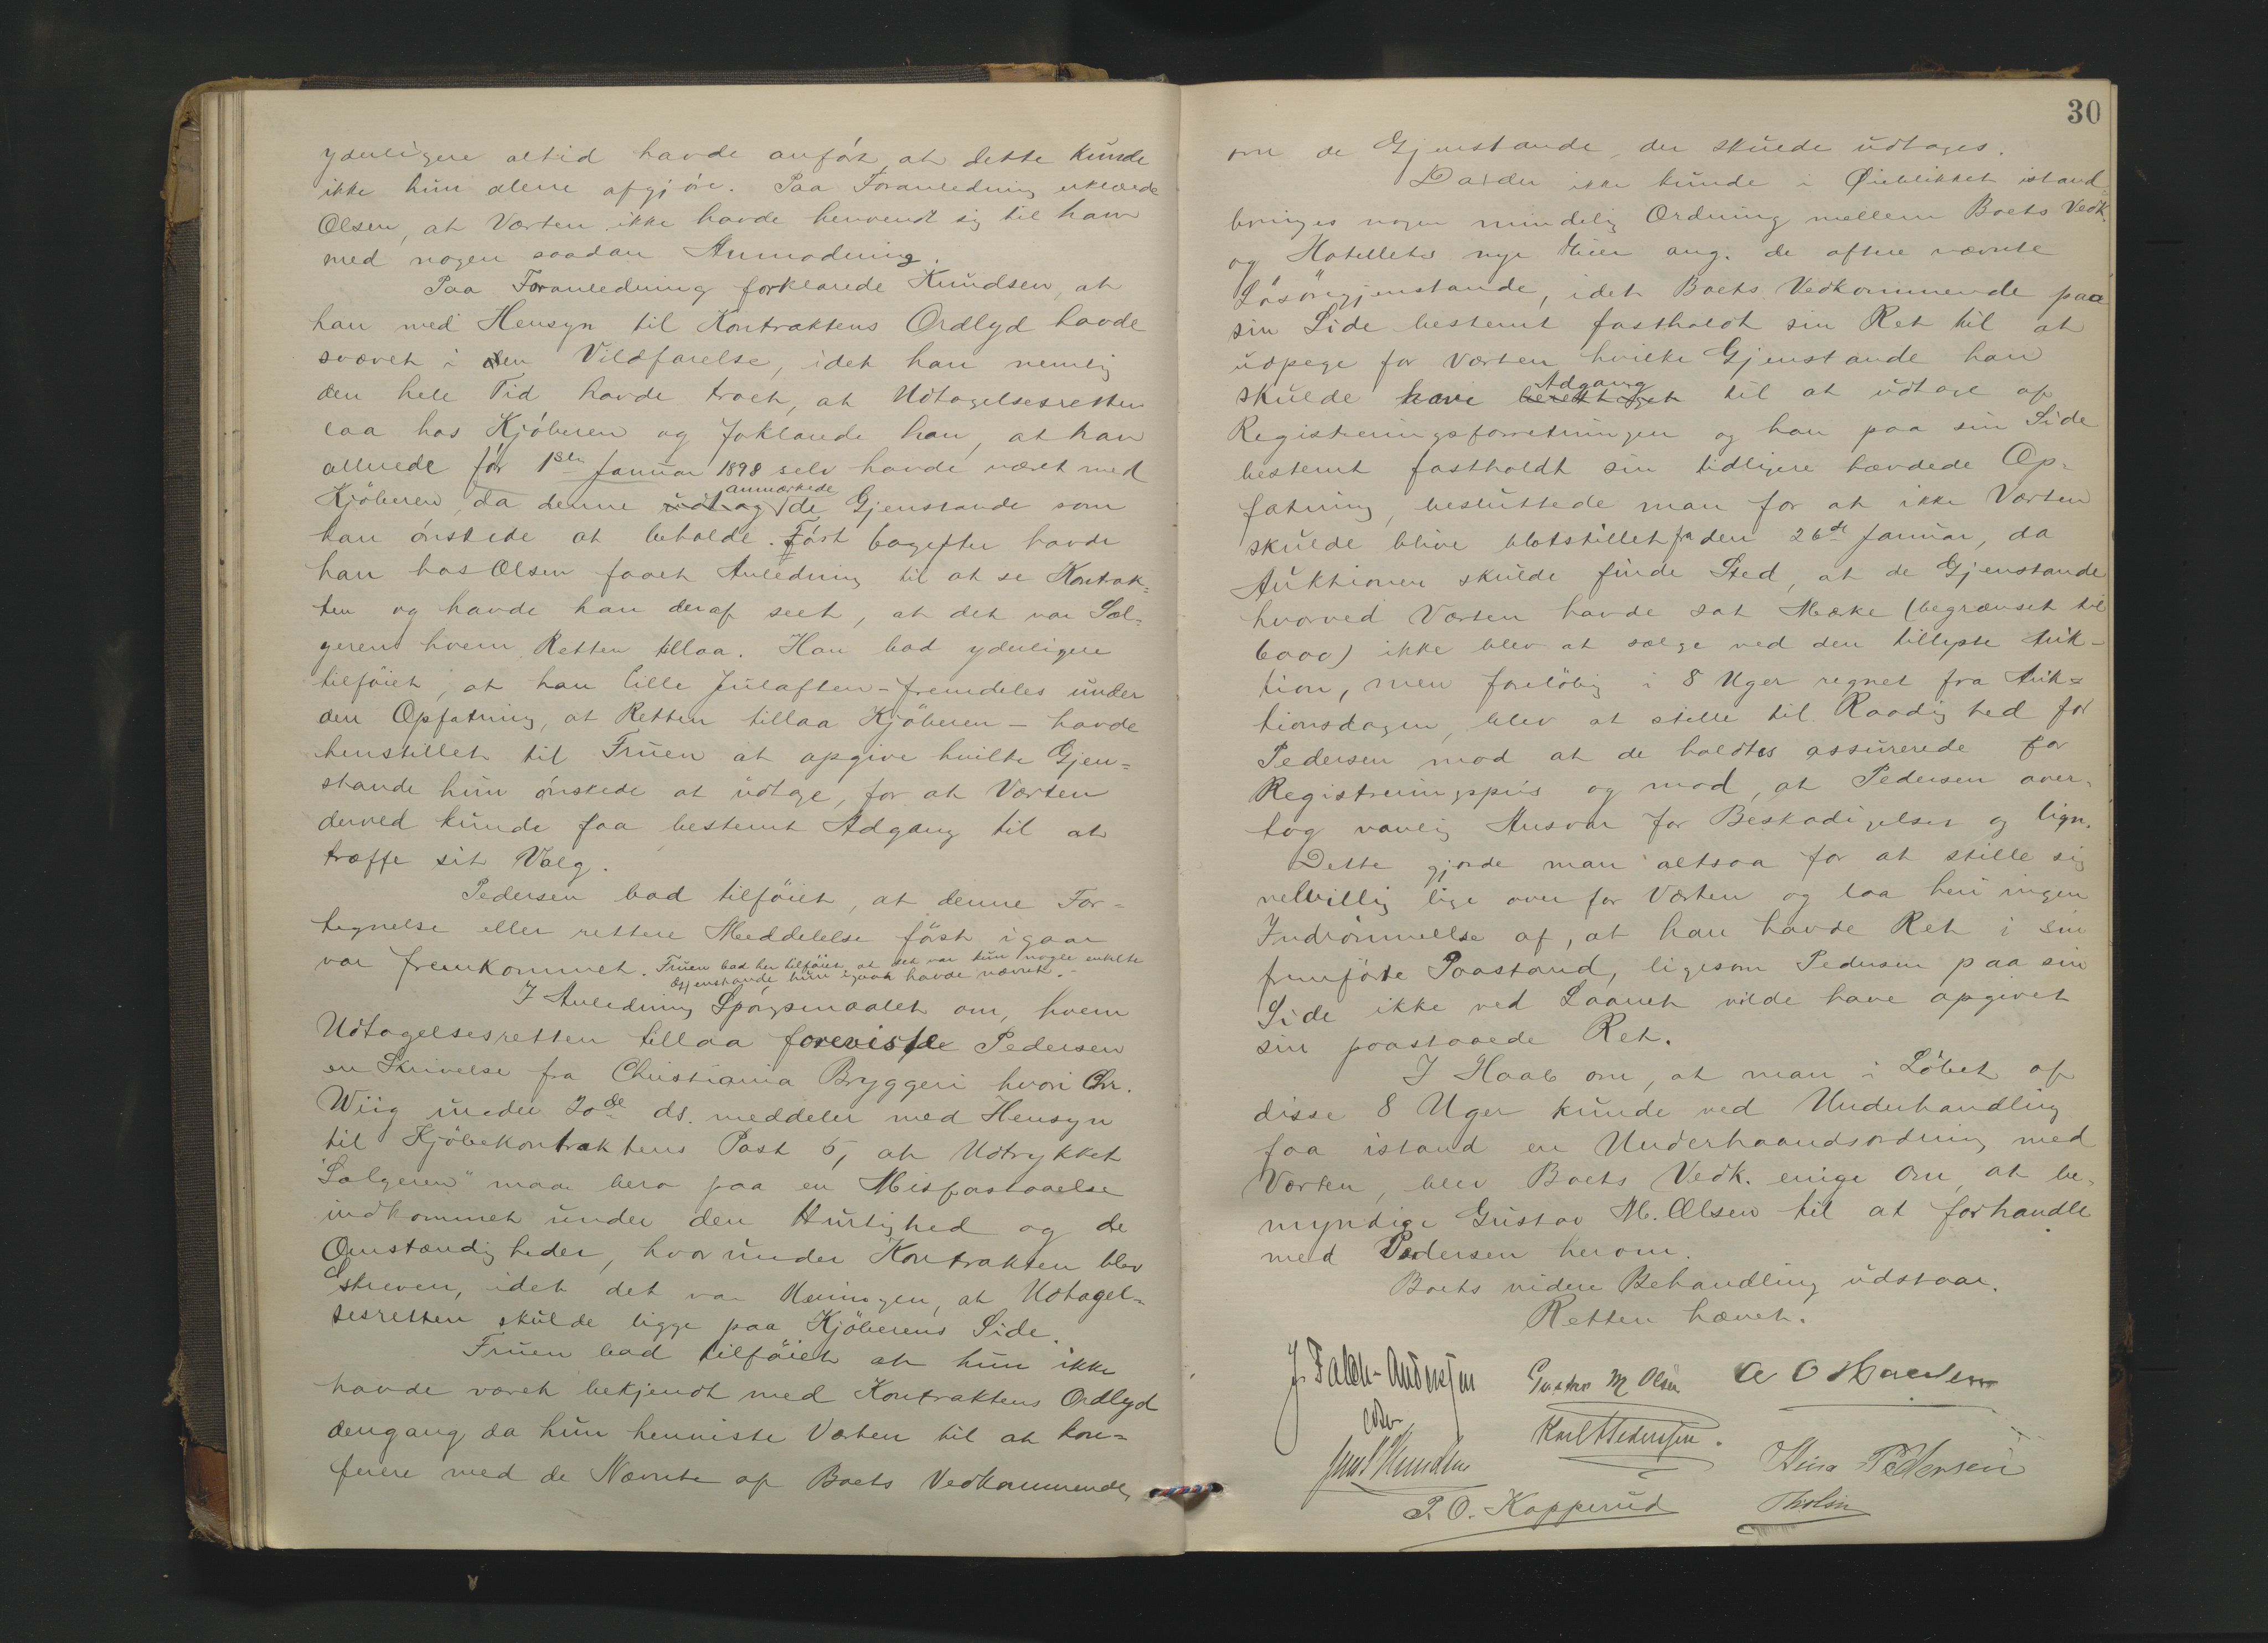 yderligere altid havde anført, at dette kunde
ikke hun alene afgjøre. Paa Foranledning erklærede
Olsen, at Værten ikke havde henvendt sig til ham
med nogen saadan Anmodning.
Paa Foranledning forklarede Knudsen, at
han med Hensyn til Kontraktens Ordlyd havde
svævet i den Vildfarelse, idet han nemlig
den hele Tid havde troet, at Udtagelsesretten
laa hos Kjøberen og forklarede han, at han
allerede før 1ste Januar 1898 selv havde været med
Kjøberen, da denne udtog anmærkede de Gjenstande som
han ønskede at beholde. Først bagefter havde
han hos Olsen faaet Anledning til at se Kontrak=
ten og havde han deraf seet, at det var Sæl=
geren hvem Retten tillaa. Han bad yderligere
tilføiet, at han lille Julaften - fremdeles under
den Opfatning, at Retten tillaa Kjøberen - havde
henstillet til Fruen at opgive hvilke Gjen=
stande hun ønskede at udtage, for at Værten
derved kunde faa bestemt Adgang til at
træffe sit Valg.
Pedersen bad tilføiet, at denne For=
tegnelse eller rettere Meddelelse først igaar
var fremkommet. Fruen bad her tilføiet, at det var kun nogle enkelte
Gjenstande hun igaar havde nævnt.-
I Anledning Spørgsmaalet om, hvem
Udtagelsesretten tillaa foreviste Pedersen
en Skrivelse fra Christiania Bryggeri hvori Chr.
Wiig under 20de ds. meddeler med Hensyn
til Kjøbekontraktens Post 5, at Udtrykket
"Sælgeren" maa bero paa en Misforstaaelse
indkommet under den Hurtighed og de
Omstændigheder, hvorunder Kontrakten blev
skreven, idet det var Meningen, at Udtagel=
sesretten skulde ligge paa Kjøberens Side.
Fruen bad tilføiet at hun ikke
havde været bekjendt med Kontraktens Ordlyd
dengang da hun henviste Værten til at kon=
ferere med de Nævnte af Boets Vedkommende,
30
om de Gjenstande, der skulde udtages.
Da der ikke kunde i Øieblikket istand
bringes nogen mindelig Ordning mellem Boets Vedk.
og Hotellets nye Eier ang. de oftere nævnte
Løsøregjenstande, idet Boets Vedkommende paa
sin Side bestemt fastholdt sin Ret til at
udpege for Værten hvilke Gjenstande han
skulde have berettiget Adgang til at udtage af
Registreringsforretningen og han paa sin Side
bestemt fastholdt sin tidligere hævdede Op=
fatning, besluttede man for at ikke Værten
skulde blive blotstillet fra den 26de Januar, da
Auktionen skulde finde Sted, at de Gjenstande
hvorved Værten havde sat Mærke (begrænset til
6000) ikke blev at sælge ved den tillyste Auk=
tion, men foreløbig i 8 Uger regnet fra Auk=
tionsdagen, blev at stille til Raadighed for
Pedersen mod at de holdtes assurerede for
Registreringspris og mod, at Pedersen over=
tog vanlig Ansvar for Beskadigelser og lign.
Dette gjorde man altsaa for at stille sig
velvillig lige over for Værten og laa heri ingen
Indrømmelse af, at han havde Ret i sin
fremførte Paastand, ligesom Pedersen paa sin
Side ikke ved Laanet vilde have opgivet
sin paastaaede Ret.
I Haab om, at man i Løbet af
disse 8 Uger kunde ved Underhandling
faa istand en Underhaandsordning med
Værten, blev Boets Vedk. enige om, at be=
myndige Gustav M. Olsen til at forhandle
med Pedersen herom.
Boets videre Behandling udstaar.
Retten hævet.
J. Falck-Anderssen Gustav M Olsen
Karl Pedersen.
Stina Pedersen
P. O. Kopperud Tholin